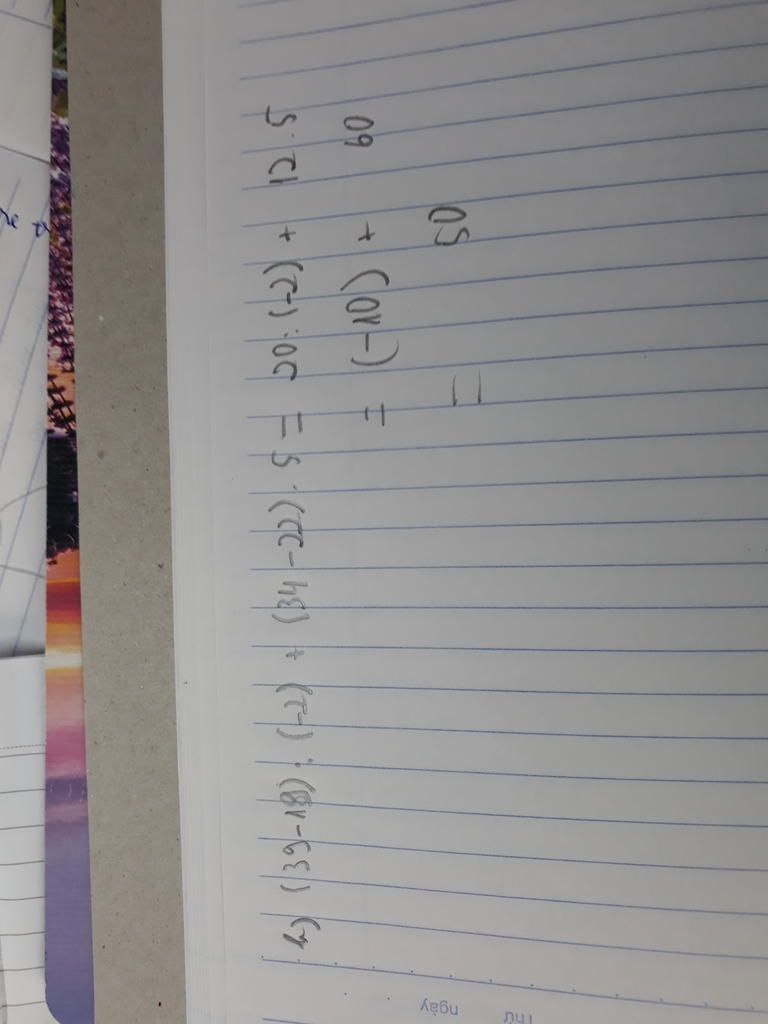 h) (39-18) : (-2) + (34-22) . 5 = 20:(-2) + 12.5
= (-10) + 60
= 50
Thứ
ngày